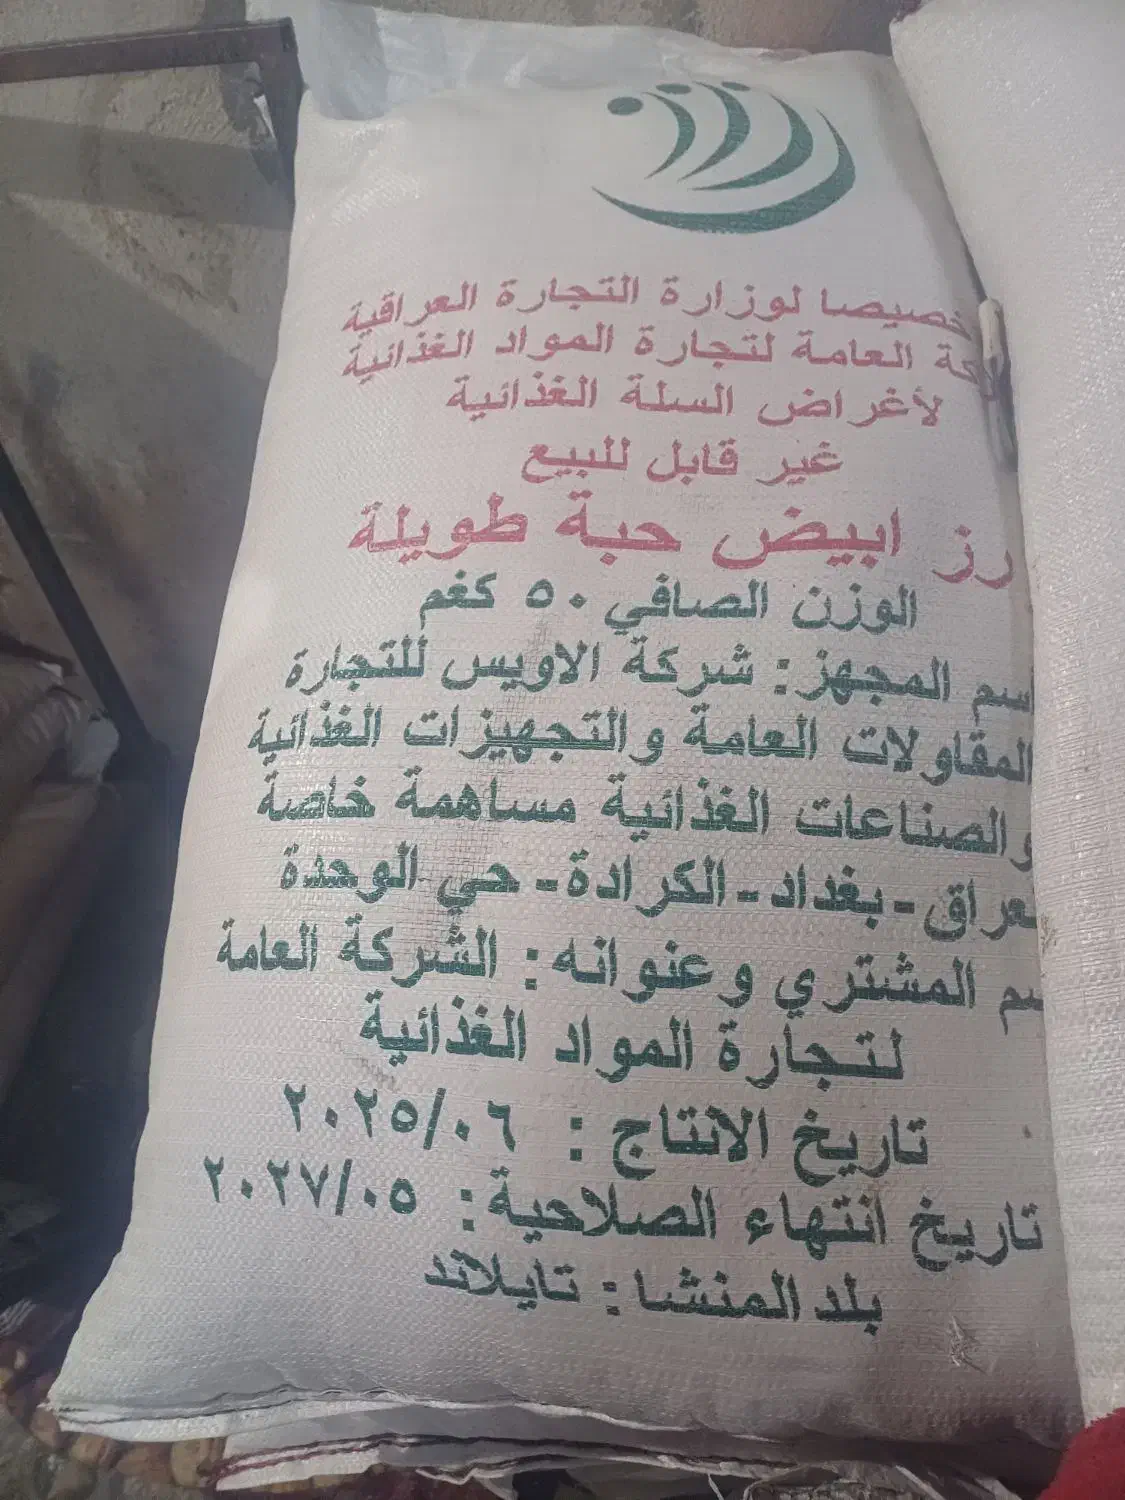 خصيصا لوزارة التجارة العراقية
العامة لتجارة المواد الغذائية
لأغراض السلة الغذائية
غير قابل للبيع
رز ابيض حبة طويلة
الوزن الصافي ٥٠ كغم
اسم المجهز : شركة الاويس للتجارة
المقاولات العامة والتجهيزات الغذائية
والصناعات الغذائية مساهمة خاصة
العراق - بغداد - الكرادة - حي الوحدة
المشتري وعنوانه : الشركة العامة
لتجارة المواد الغذائية
تاريخ الانتاج : ٢٠٢٥/٠٦
تاريخ انتهاء الصلاحية : ٢٠٢٧/٠٥
بلد المنشا : تايلاند